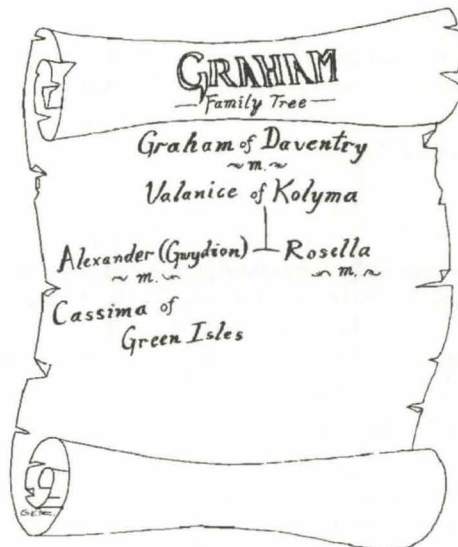 GRAHAM
— Family Tree —
Graham of Daventry
~ m. ~
Valanice of Kolyma
Alexander (Gwydion) — Rosella
~ m. ~ ~ m. ~
Cassima of
Green Isles